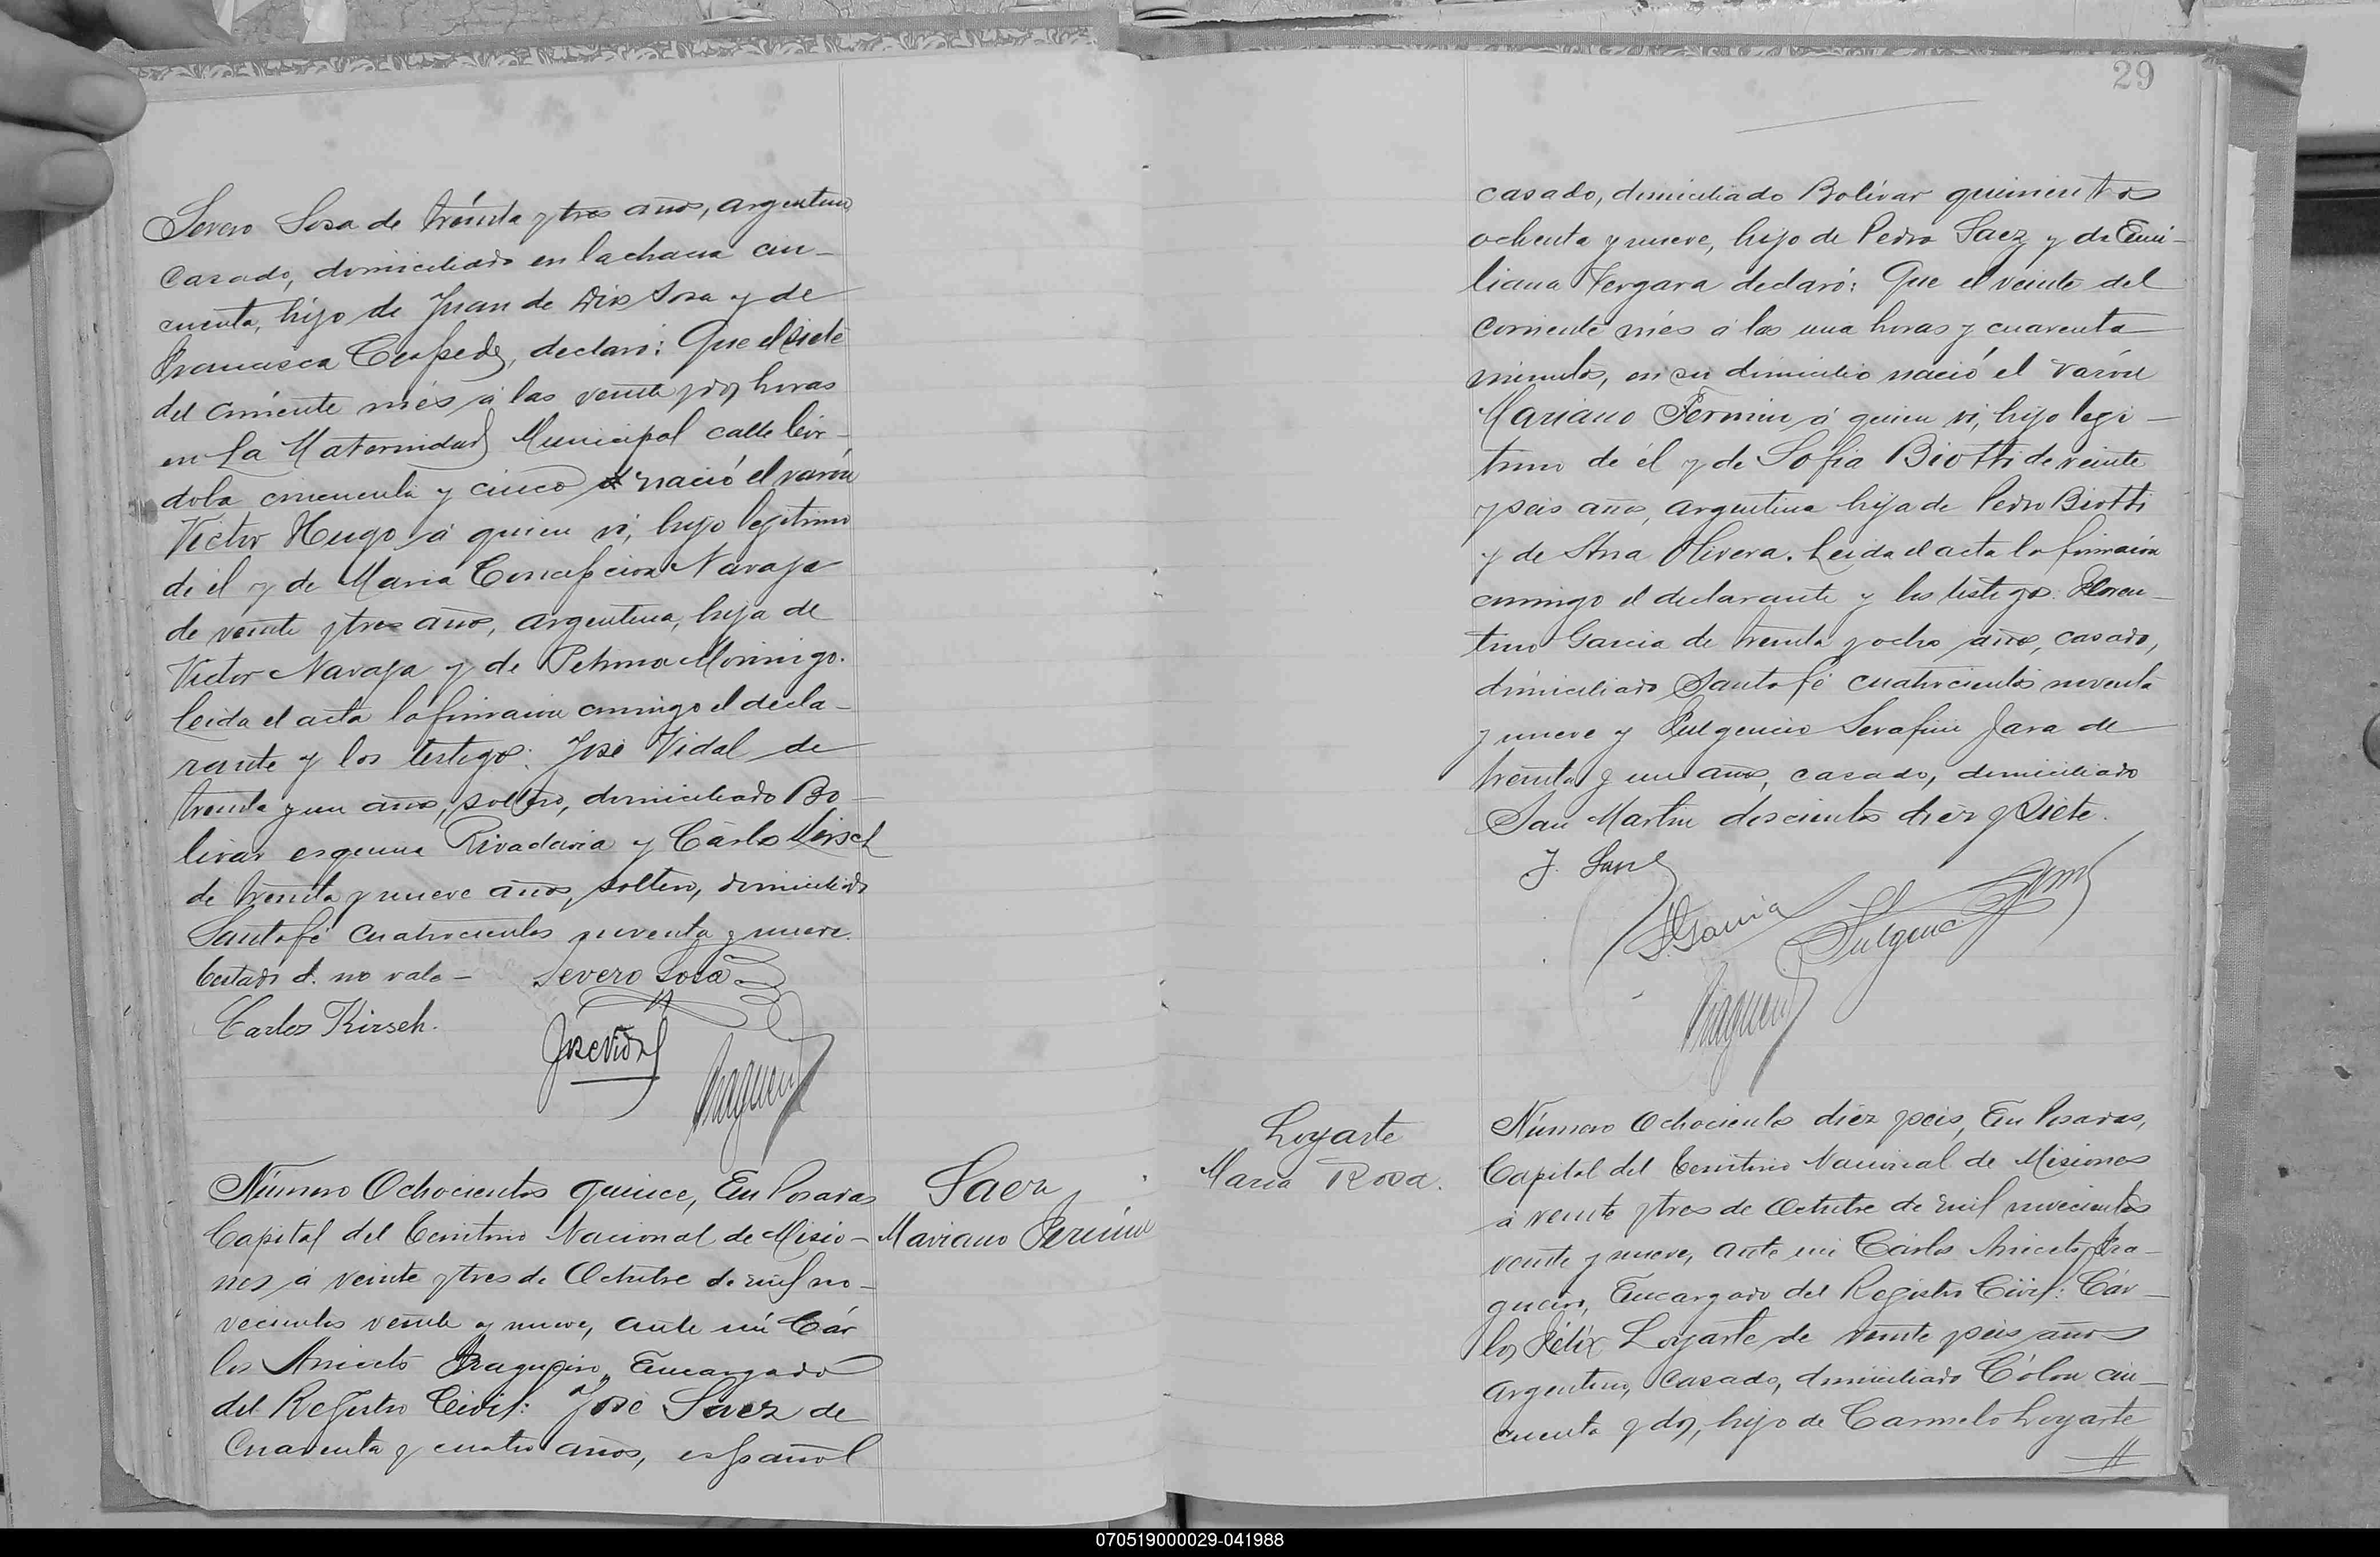 Severo Sosa de tréinta y tres años, argentino,
casado, domiciliado en la chacra cin-
cuenta, hijo de Juan de Dios Sosa y de
Francisca Cespedes, declaró: Que el siete
del corriente més á las veinte y dos horas
en la Maternidad Municipal calle Cór-
doba cincuenta y cinco d nació el varón
Victor Hugo á quien ví, hijo legítimo
de él y de Maria Concepcion Navaja
de veinte y tres años, argentina, hija de
Victor Navaja y de Petrona Morinigo.
Leida el acta la firmaron conmigo el decla-
rante y los testigos: José Vidal de
treinta y un años, soltero, domiciliado Bo-
livar esquina Rivadavia y Cárlos Kirsch
de treinta y nueve años, soltero, domiciliado
Santa fé cuatrocientos noventa y nueve.
Testado d. no vale - Severo Sosa
Carlos Kirsch.
José Vidal
Número Ochocientos quince, En Posadas
Capital del Territorio Nacional de Misio-
nes á veinte y tres de Octubre de mil no-
vecientos veinte y nueve, ante mí Cár
los Aniceto Fragueiro, Encargado
del Registro Civil: José Saez de
Cuarenta y cuatro años, español
Saez
Mariano Fermin
29
casado, domiciliado Bolívar quinientos
ochenta y nueve, hijo de Pedro Saez y de Emi-
liana Vergara declaró: Que el veinte del
corriente més á las una horas y cuarenta
minutos, en su domicilio nació el varón
Mariano Fermin á quien ví, hijo legi-
timo de él y de Sofia Biotti de veinte
y seis años, argentina hija de Pedro Biotti
y de Olivera. Leida el acta la firmaron
conmigo el declarante y los testigos: Floren-
tino Garcia de treinta y ocho años, casado,
domiciliado Santa fé cuatrocientos noventa
y nueve y Fulgencio Serafin Jara de
treinta y un años, casado, domiciliado
San Martin doscientos diez y siete.
J. Saez
F. Garcia
Fulgenc
Loyarte
Maria Rosa.
Número Ochocientos diez y seis, En Posadas,
Capital del Territorio Nacional de Misiones
á veinte y tres de Octubre de mil novecientos
veinte y nueve, ante mi Cárlos Aniceto Fra-
gueiro, Encargado del Registro Civil: Cár-
los Félix Loyarte de veinte y seis años
argentino, casado, domiciliado Cólon cin-
cuenta y dos, hijo de Carmelo Loyarte
070519000029-041988